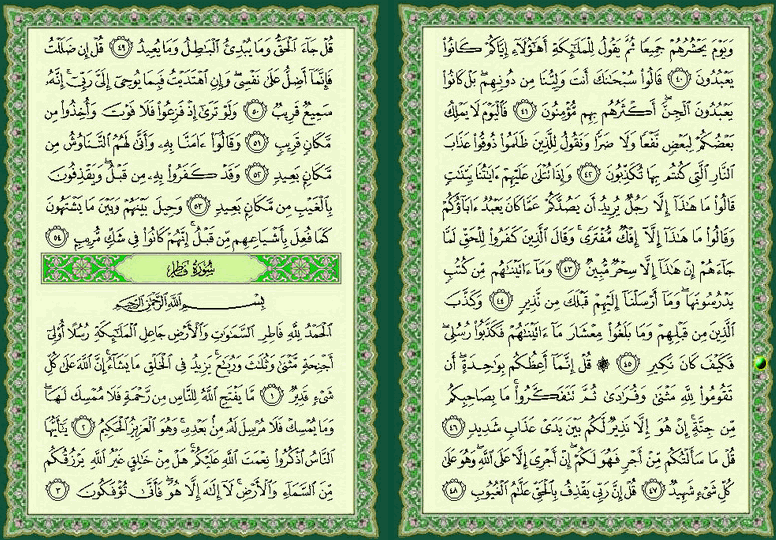 وَيَوْمَ يَحْشُرُهُمْ جَمِيعًا ثُمَّ يَقُولُ لِلْمَلَٰٓئِكَةِ أَهَٰٓؤُلَآءِ إِيَّاكُمْ كَانُوا۟
يَعْبُدُونَ ٤٠ قَالُوا۟ سُبْحَٰنَكَ أَنتَ وَلِيُّنَا مِن دُونِهِم ۖ بَلْ كَانُوا۟
يَعْبُدُونَ ٱلْجِنَّ ۖ أَكْثَرُهُم بِهِم مُّؤْمِنُونَ ٤١ فَٱلْيَوْمَ لَا يَمْلِكُ
بَعْضُكُمْ لِبَعْضٍ نَّفْعًا وَلَا ضَرًّا وَنَقُولُ لِلَّذِينَ ظَلَمُوا۟ ذُوقُوا۟ عَذَابَ
ٱلنَّارِ ٱلَّتِى كُنتُم بِهَا تُكَذِّبُونَ ٤٢ وَإِذَا تُتْلَىٰ عَلَيْهِمْ ءَايَٰتُنَا بَيِّنَٰتٍ
قَالُوا۟ مَا هَٰذَآ إِلَّا رَجُلٌ يُرِيدُ أَن يَصُدَّكُمْ عَمَّا كَانَ يَعْبُدُ ءَابَآؤُكُمْ
وَقَالُوا۟ مَا هَٰذَآ إِلَّآ إِفْكٌ مُّفْتَرًى ۚ وَقَالَ ٱلَّذِينَ كَفَرُوا۟ لِلْحَقِّ لَمَّا
جَآءَهُمْ إِنْ هَٰذَآ إِلَّا سِحْرٌ مُّبِينٌ ٤٣ وَمَآ ءَاتَيْنَٰهُم مِّن كُتُبٍ
يَدْرُسُونَهَا ۖ وَمَآ أَرْسَلْنَآ إِلَيْهِمْ قَبْلَكَ مِن نَّذِيرٍ ٤٤ وَكَذَّبَ
ٱلَّذِينَ مِن قَبْلِهِمْ وَمَا بَلَغُوا۟ مِعْشَارَ مَآ ءَاتَيْنَٰهُمْ فَكَذَّبُوا۟ رُسُلِى ۖ
فَكَيْفَ كَانَ نَكِيرِ ٤٥ ۞ قُلْ إِنَّمَآ أَعِظُكُم بِوَٰحِدَةٍ ۖ أَن
تَقُومُوا۟ لِلَّهِ مَثْنَىٰ وَفُرَٰدَىٰ ثُمَّ تَتَفَكَّرُوا۟ ۚ مَا بِصَاحِبِكُم
مِّن جِنَّةٍ ۚ إِنْ هُوَ إِلَّا نَذِيرٌ لَّكُم بَيْنَ يَدَىْ عَذَابٍ شَدِيدٍ ٤٦
قُلْ مَا سَأَلْتُكُم مِّنْ أَجْرٍ فَهُوَ لَكُمْ ۖ إِنْ أَجْرِىَ إِلَّا عَلَى ٱللَّهِ ۖ وَهُوَ عَلَىٰ
كُلِّ شَىْءٍ شَهِيدٌ ٤٧ قُلْ إِنَّ رَبِّى يَقْذِفُ بِٱلْحَقِّ عَلَّٰمُ ٱلْغُيُوبِ ٤٨
قُلْ جَآءَ ٱلْحَقُّ وَمَا يُبْدِئُ ٱلْبَٰطِلُ وَمَا يُعِيدُ ٤٩ قُلْ إِن ضَلَلْتُ
فَإِنَّمَآ أَضِلُّ عَلَىٰ نَفْسِى ۖ وَإِنِ ٱهْتَدَيْتُ فَبِمَا يُوحِىٓ إِلَىَّ رَبِّىٓ ۚ إِنَّهُۥ
سَمِيعٌ قَرِيبٌ ٥٠ وَلَوْ تَرَىٰٓ إِذْ فَزِعُوا۟ فَلَا فَوْتَ وَأُخِذُوا۟ مِن
مَّكَانٍ قَرِيبٍ ٥١ وَقَالُوٓا۟ ءَامَنَّا بِهِۦ وَأَنَّىٰ لَهُمُ ٱلتَّنَاوُشُ مِن
مَّكَانٍۭ بَعِيدٍ ٥٢ وَقَدْ كَفَرُوا۟ بِهِۦ مِن قَبْلُ ۖ وَيَقْذِفُونَ
بِٱلْغَيْبِ مِن مَّكَانٍۭ بَعِيدٍ ٥٣ وَحِيلَ بَيْنَهُمْ وَبَيْنَ مَا يَشْتَهُونَ
كَمَا فُعِلَ بِأَشْيَاعِهِم مِّن قَبْلُ ۚ إِنَّهُمْ كَانُوا۟ فِى شَكٍّ مُّرِيبٍۭ ٥٤
سُورَةُ فَاطِرٍ
بِسْمِ ٱللَّهِ ٱلرَّحْمَٰنِ ٱلرَّحِيمِ
ٱلْحَمْدُ لِلَّهِ فَاطِرِ ٱلسَّمَٰوَٰتِ وَٱلْأَرْضِ جَاعِلِ ٱلْمَلَٰٓئِكَةِ رُسُلًا أُو۟لِىٓ
أَجْنِحَةٍ مَّثْنَىٰ وَثُلَٰثَ وَرُبَٰعَ ۚ يَزِيدُ فِى ٱلْخَلْقِ مَا يَشَآءُ ۚ إِنَّ ٱللَّهَ عَلَىٰ كُلِّ
شَىْءٍ قَدِيرٌ ١ مَّا يَفْتَحِ ٱللَّهُ لِلنَّاسِ مِن رَّحْمَةٍ فَلَا مُمْسِكَ لَهَا ۖ
وَمَا يُمْسِكْ فَلَا مُرْسِلَ لَهُۥ مِنۢ بَعْدِهِۦ ۚ وَهُوَ ٱلْعَزِيزُ ٱلْحَكِيمُ ٢ يَٰٓأَيُّهَا
ٱلنَّاسُ ٱذْكُرُوا۟ نِعْمَتَ ٱللَّهِ عَلَيْكُمْ ۚ هَلْ مِنْ خَٰلِقٍ غَيْرُ ٱللَّهِ يَرْزُقُكُم
مِّنَ ٱلسَّمَآءِ وَٱلْأَرْضِ ۚ لَآ إِلَٰهَ إِلَّا هُوَ ۖ فَأَنَّىٰ تُؤْفَكُونَ ٣